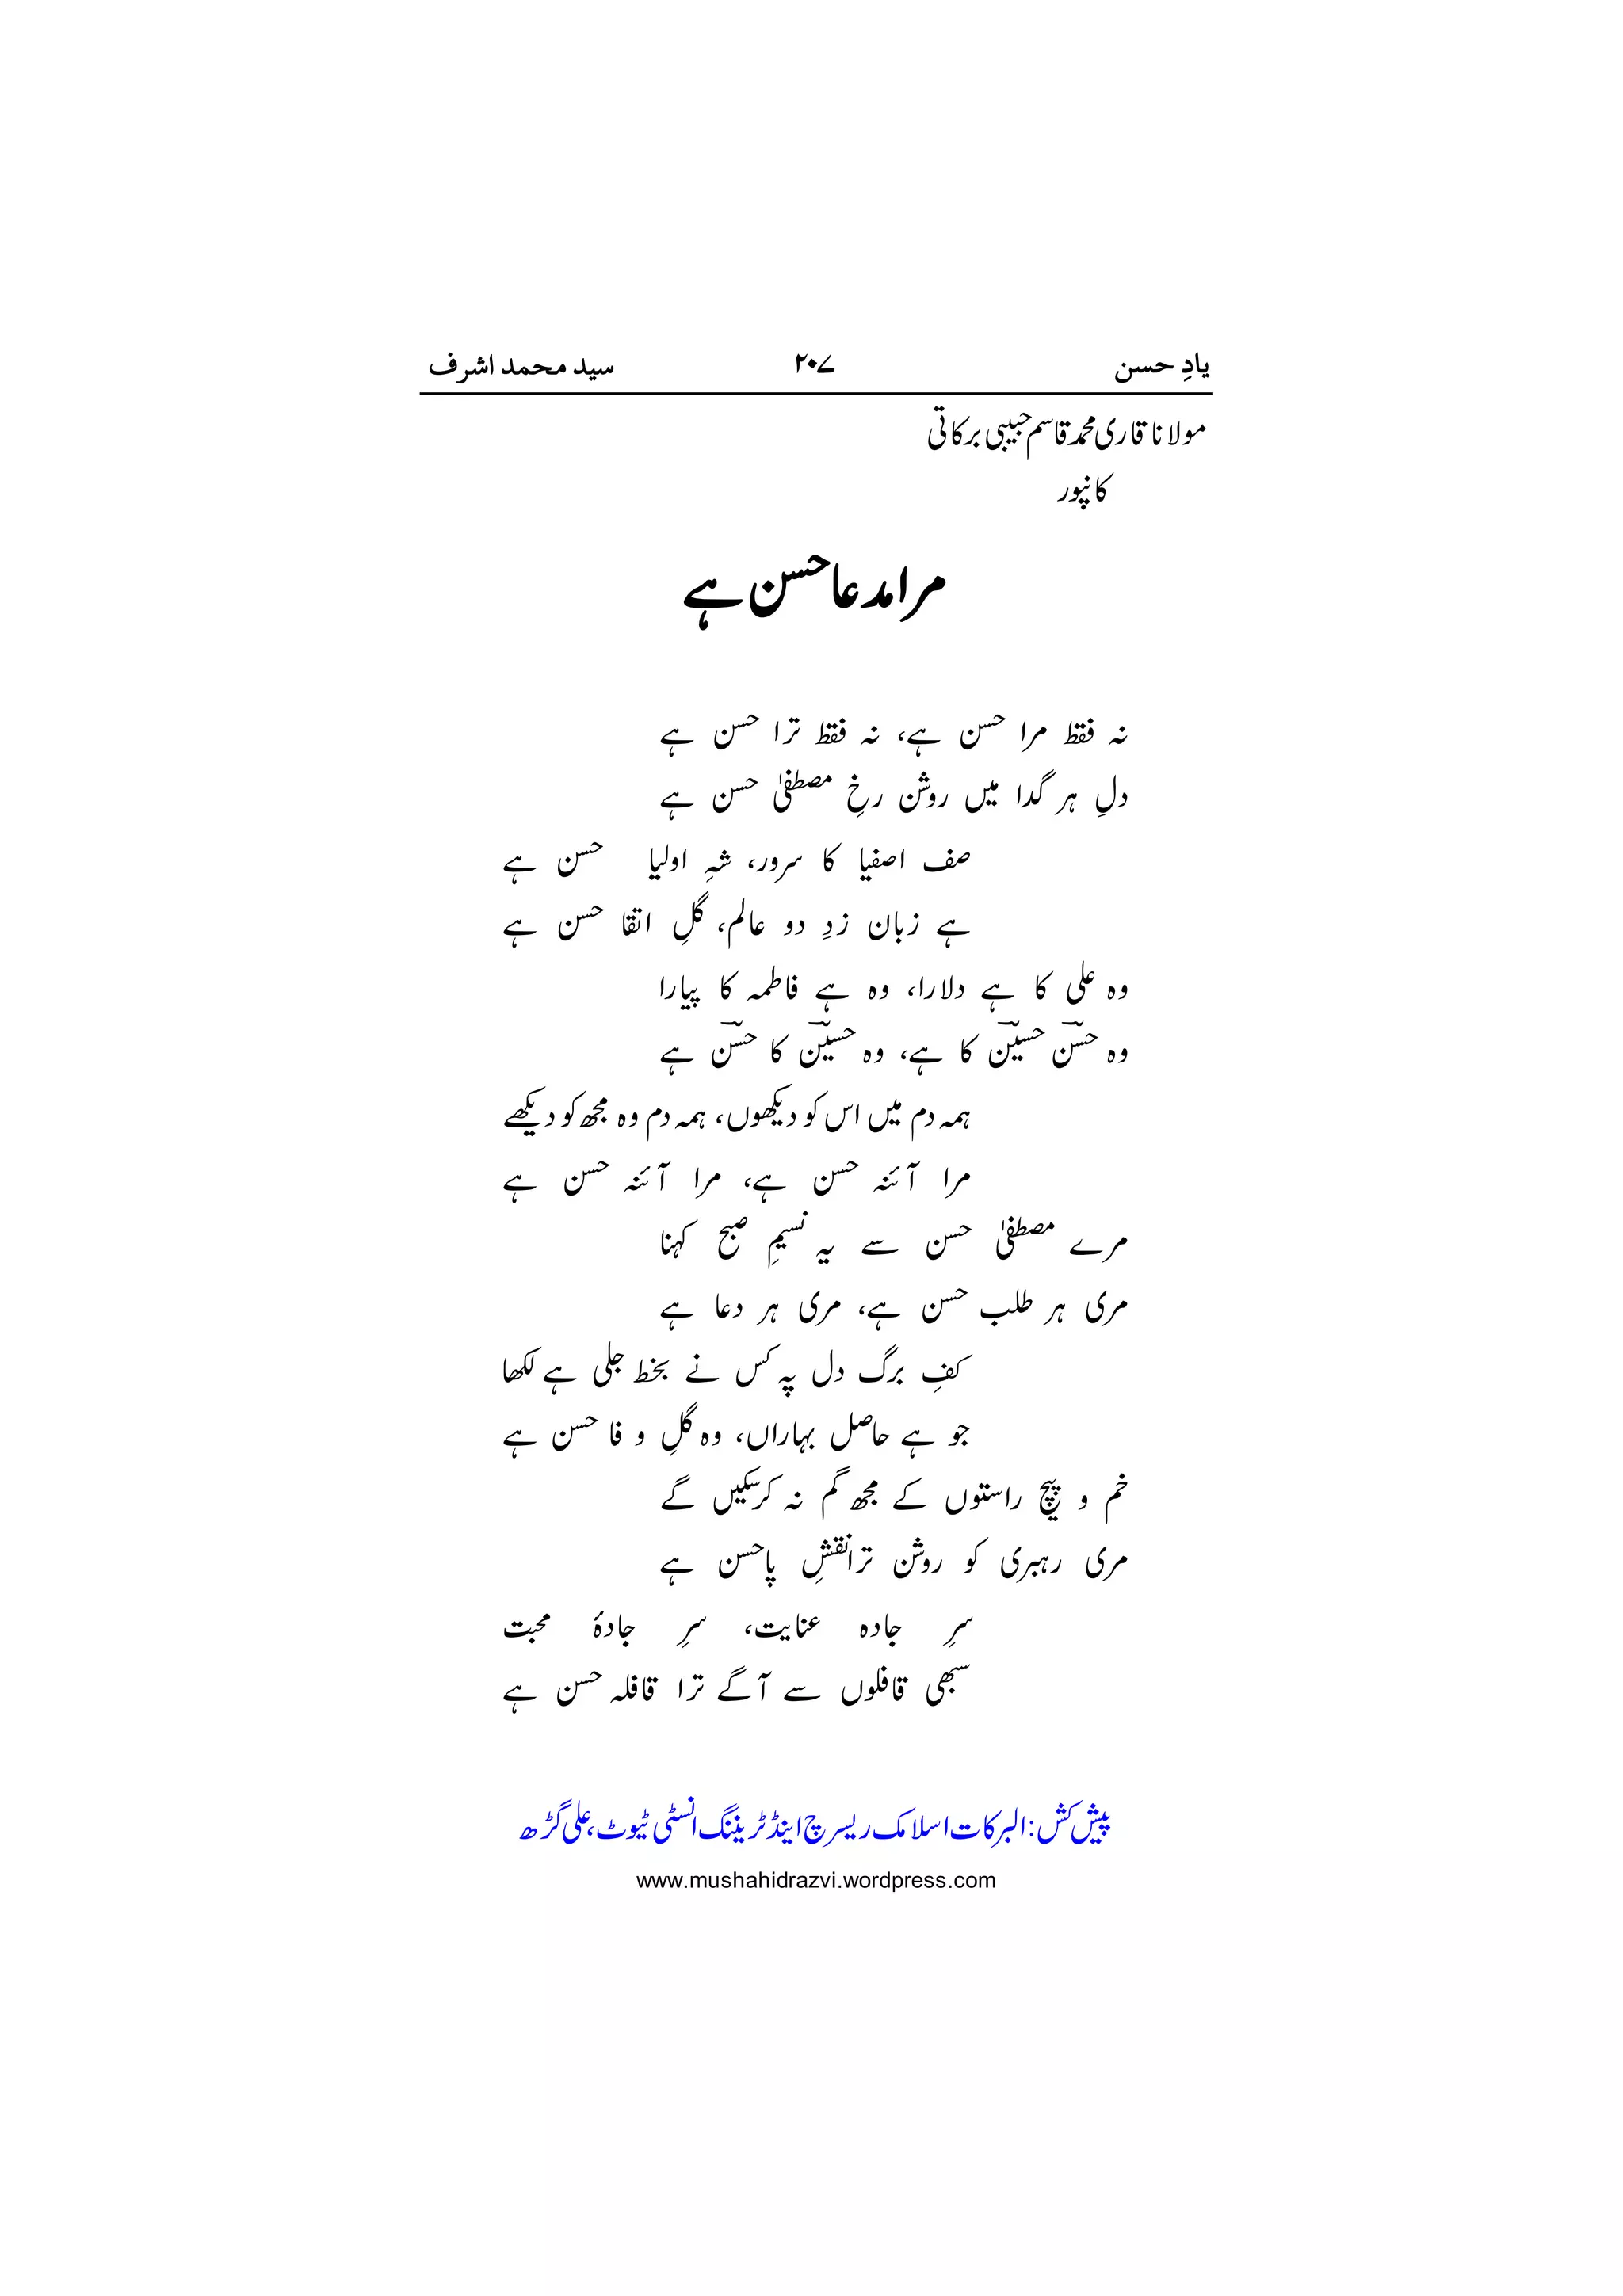 یادِ حسن ۲۰۷ سید محمد اشرف
مولانا قاری محمد قاسم حبیبی برکاتی
کانپور
مرا مدعا حسن ہے
نہ فقط مرا حسن ہے، نہ فقط ترا حسن ہے
دلِ ہر گدا میں روشن رخِ مصطفیٰ حسن ہے
صف اصفیا کا سرور، شہِ اولیا حسن ہے
ہے زبان زدِ دو عالم، گلِ اتقا حسن ہے
وہ علی کا ہے دلارا، وہ ہے فاطمہ کا پیارا
وہ حسنؓ حسینؓ کا ہے، وہ حسینؓ کا حسنؓ ہے
ہمہ دم میں اس کو دیکھوں، ہمہ دم وہ مجھ کو دیکھے
مرا آئنہ حسن ہے، مرا آئنہ حسن ہے
مرے مصطفیٰ حسن سے یہ نسیمِ صبح کہنا
مری ہر طلب حسن ہے، مری ہر دعا ہے
کفِ برگ دل پہ کس نے بخط جلی ہے لکھا
جو ہے حاصل بہاراں، وہ گلِ و فا حسن ہے
خم و پیچ راستوں کے مجھ گم نہ کرسکیں گے
مری رہبری کو روشن ترا نقشِ پا حسن ہے
سرِ جادہ عنایت، سرِ جادۂ محبت
سبھی قافلوں سے آگے ترا قافلہ حسن ہے
پیش کش: البرکات اسلامک ریسرچ اینڈ ٹریننگ انسٹی ٹیوٹ، علی گڑھ
www.mushahidrazvi.wordpress.com